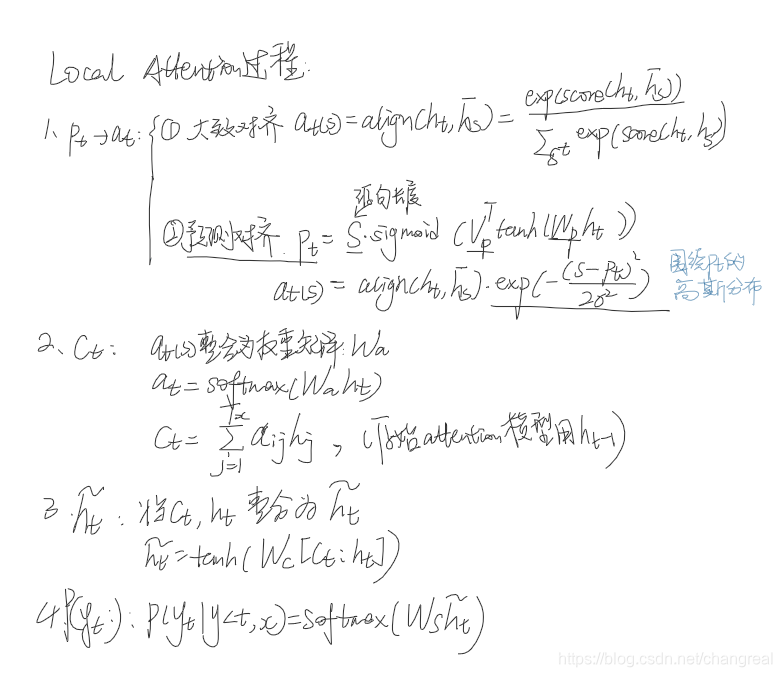 Local Attention过程:
1、Pt→at: ① 大致对齐 at(s)=align(ht, h̄s)= exp(score(ht, h̄s)) / Σs't exp(score(ht, hs))
源句长度
② 预测对齐. Pt = S·sigmoid (Vp^T tanh(Wp ht))
at(s) = align(ht, h̄s)·exp(-(s-Pt)²/2σ²) 围绕Pt的高斯分布
2、Ct: at(s)整合为权重矩阵Wa
at=softmax(Waht)
Ct= Σ_{j=1}^{Tx} aijhj , (原始attention模型用ht-1)
3. h̃t : 将Ct, ht 整合为 h̃t
h̃t=tanh(Wc[Ct:ht])
4 P(yt:): P(yt|y<t,x)=Softmax(Wsh̃t)
https://blog.csdn.net/changreal